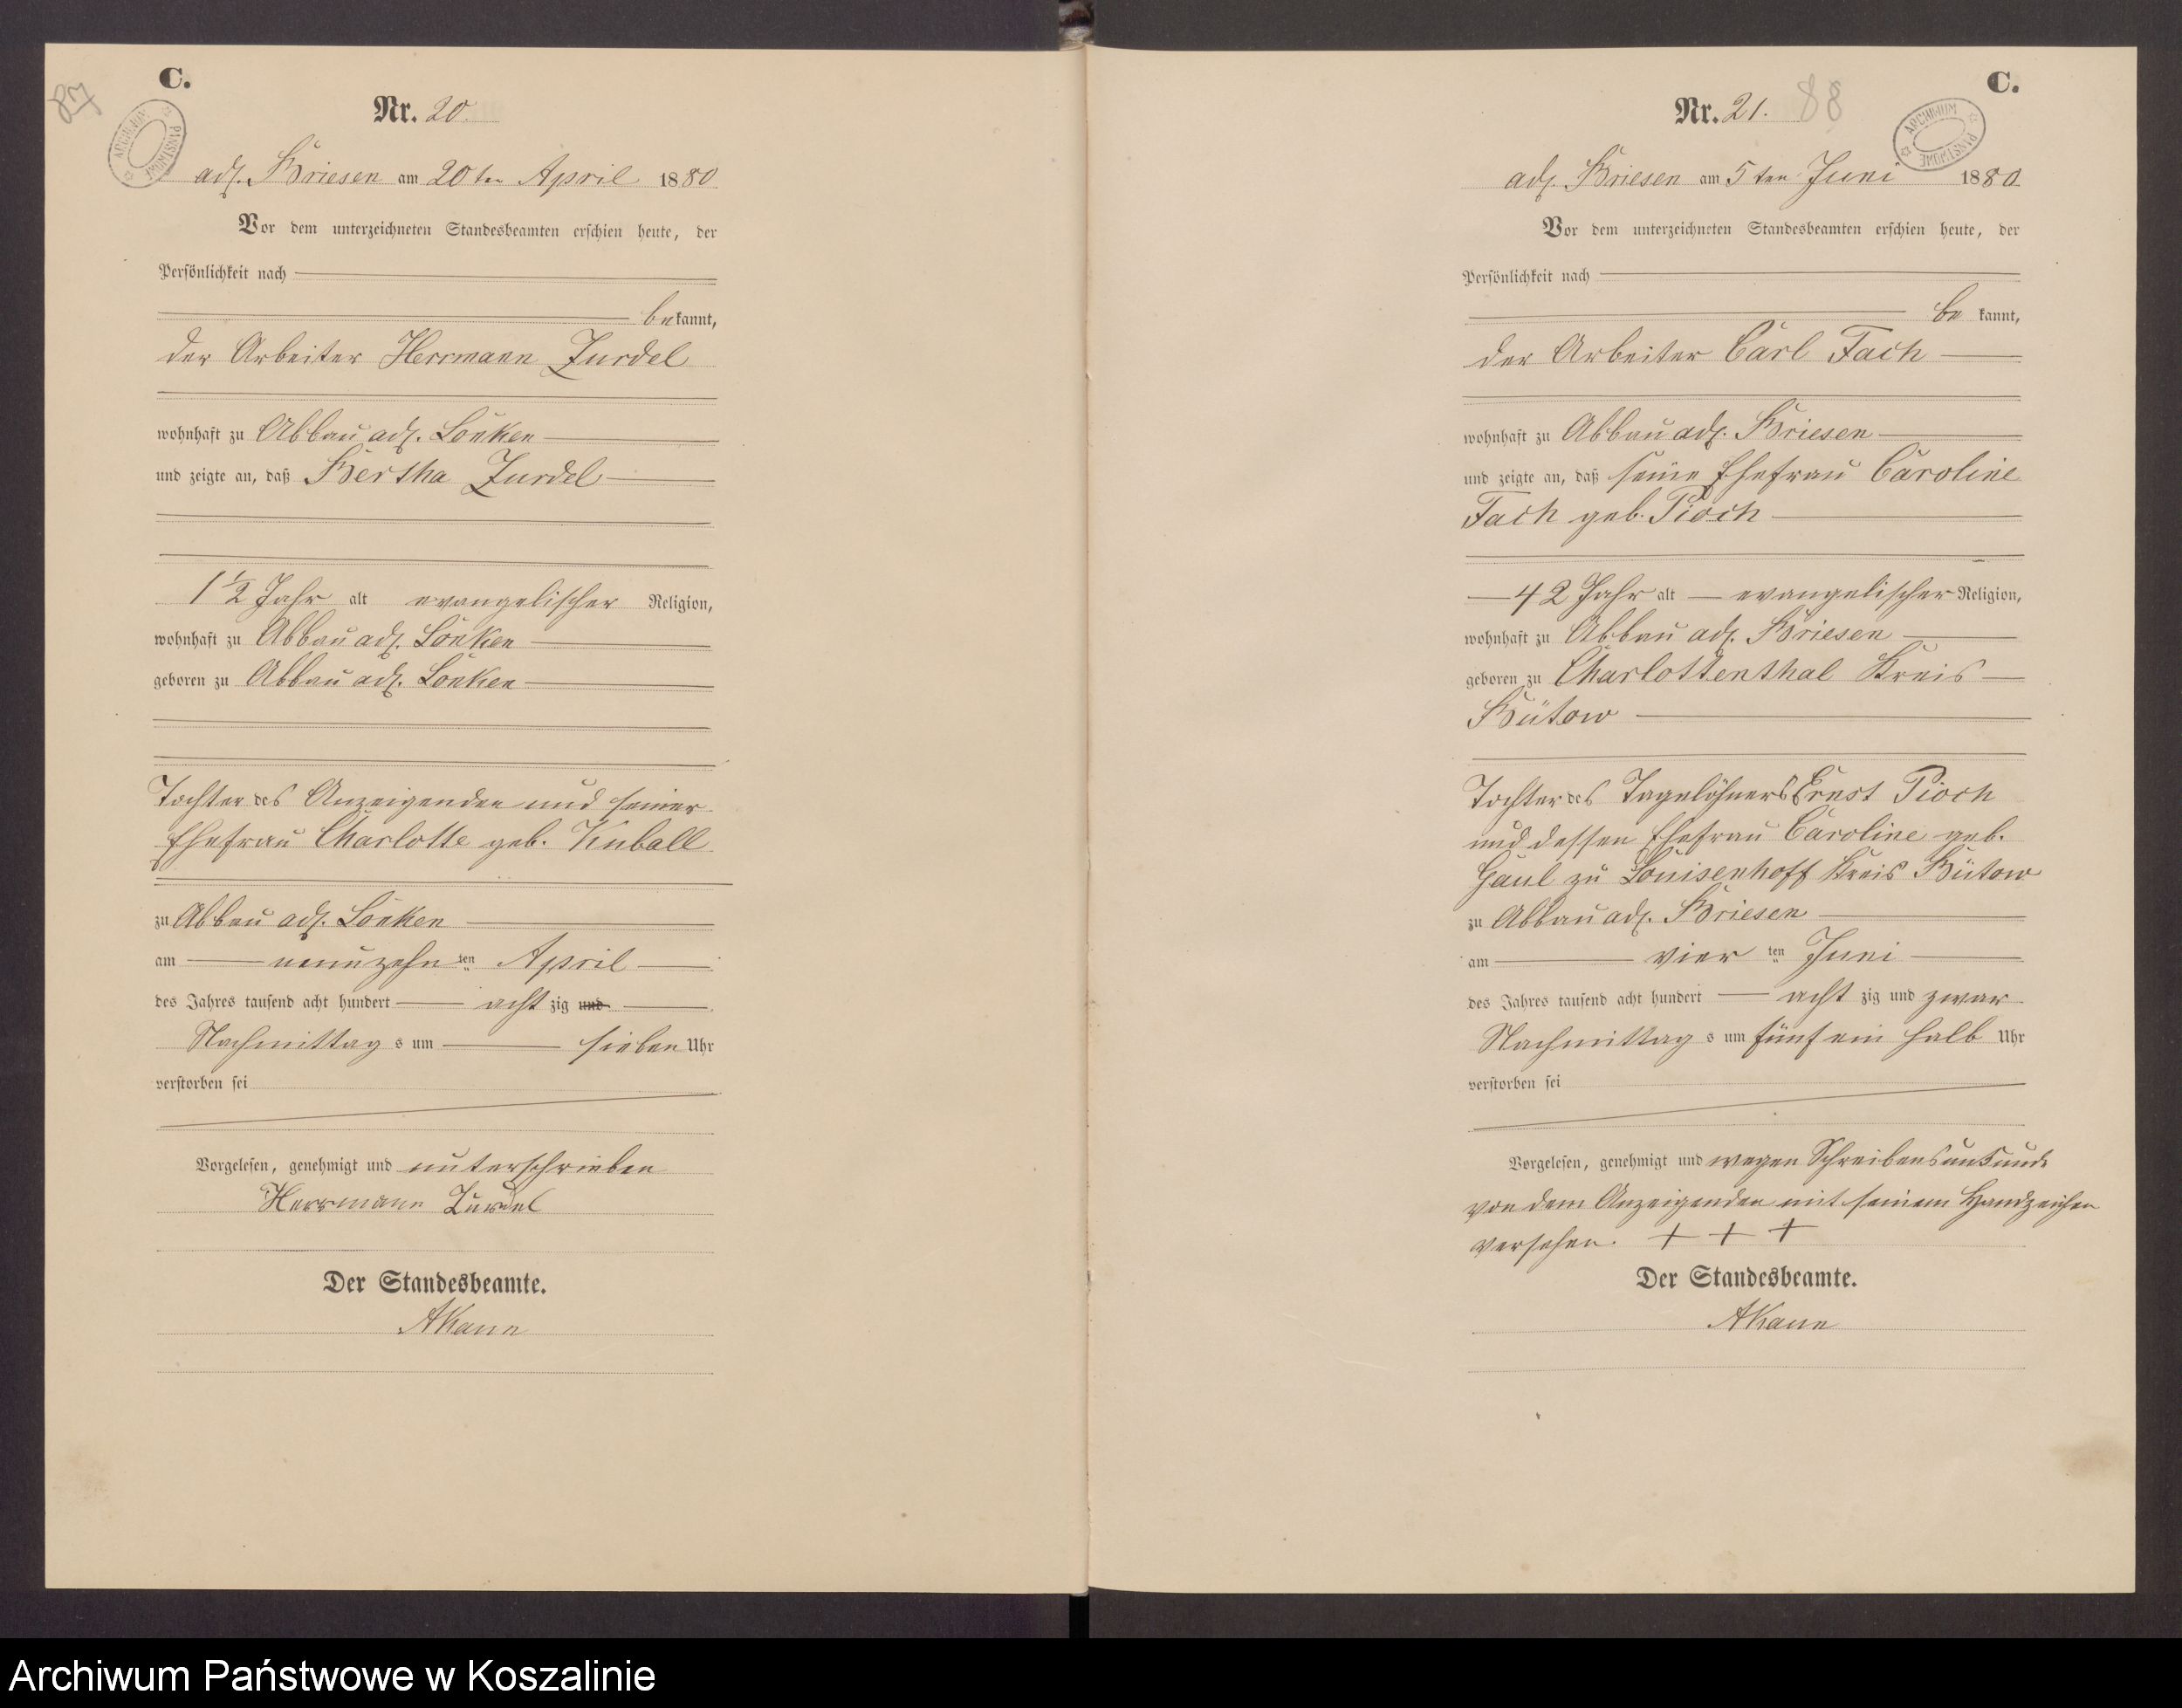 87
C.
Nr. 20.
ARCHIWUM PAŃSTWOWE
adl. Briesen am 20ten April 1880
Vor dem unterzeichneten Standesbeamten erschien heute, der
Persönlichkeit nach
bekannt,
der Arbeiter Herrmann Zurdel
wohnhaft zu Abbau adl. Lonken
und zeigte an, daß Bertha Zurdel
1 1/2 Jahr alt evangelischer Religion,
wohnhaft zu Abbau adl. Lonken
geboren zu Abbau adl. Lonken
Tochter des Anzeigenden und seiner
Ehefrau Charlotte geb. Kuball
zu Abbau adl. Lonken
am neunzehn ten April
des Jahres tausend acht hundert acht zig und
Nachmittag s um sieben Uhr
verstorben sei
Vorgelesen, genehmigt und unterschrieben
Herrmann Zurdel
Der Standesbeamte.
AKann
C.
Nr. 21. 88
ARCHIWUM PAŃSTWOWE
adl. Briesen am 5ten Juni 1880
Vor dem unterzeichneten Standesbeamten erschien heute, der
Persönlichkeit nach
be kannt,
der Arbeiter Carl Fach
wohnhaft zu Abbau adl. Briesen
und zeigte an, daß seine Ehefrau Caroline
Fach geb. Pioch
42 Jahr alt evangelischer Religion,
wohnhaft zu Abbau adl. Briesen
geboren zu Charlottenthal Kreis
Bütow
Tochter des Tagelöhners Ernst Pioch
und dessen Ehefrau Caroline geb.
Gaul zu Louisenhoff Kreis Bütow
zu Abbau adl. Briesen
am vier ten Juni
des Jahres tausend acht hundert acht zig und zwar
Nachmittag s um fünf ein halb Uhr
verstorben sei
Vorgelesen, genehmigt und wegen Schreibensunkunde
von dem Anzeigenden mit seinem Handzeichen
versehen. + + +
Der Standesbeamte.
AKann
Archiwum Państwowe w Koszalinie